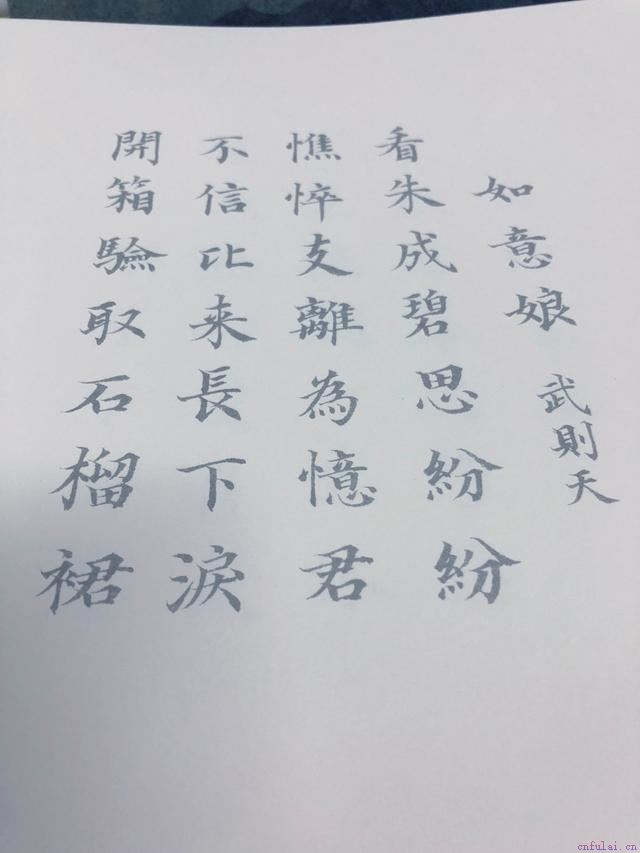 如意娘
武則天
看朱成碧思紛紛
憔悴支離為憶君
不信比来長下淚
開箱驗取石榴裙
cnfulai.cn